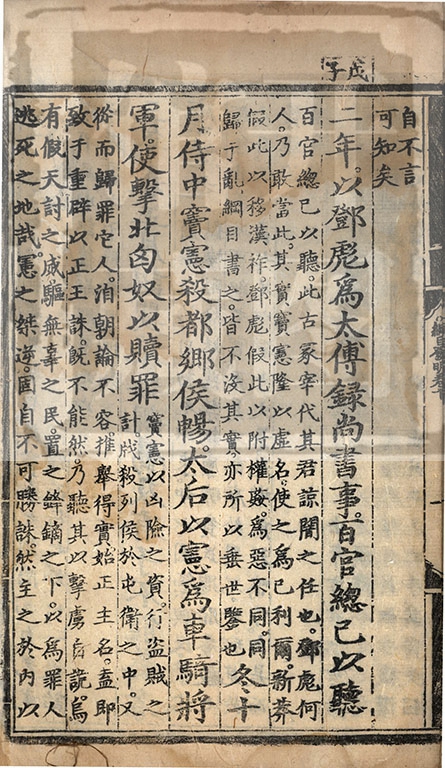 戊子
自不言
可知矣
二年。以鄧彪爲太傅録尚書事。百官總己以聽
百官總己以聽。此古冢宰代其君諒闇之任也。鄧彪何
人。乃敢當此。其實竇憲隆以虛名。使之爲己利爾。新莽
假此以移漢祚。鄧彪假此以附權姦。爲惡不同同
歸于亂。綱目書之。皆不沒其實。亦所以垂世鑒也
冬十
月侍中竇憲殺都鄉侯暢。太后以憲爲車騎將
軍。使擊北匈奴以贖罪
竇憲以凶險之資。行盜賊之
計。戕殺列侯於屯衛之中。又
從而歸罪它人。洎朝論不容推舉得實。始正主名。盍即
致于重辟以正王誅。既不能然。乃聽其以擊虜自詭。烏
有假天討之威。驅無辜之民。置之鋒鏑之下。以爲罪人
逃死之地哉。憲之桀逆。固自不可勝誅。然主之於內以